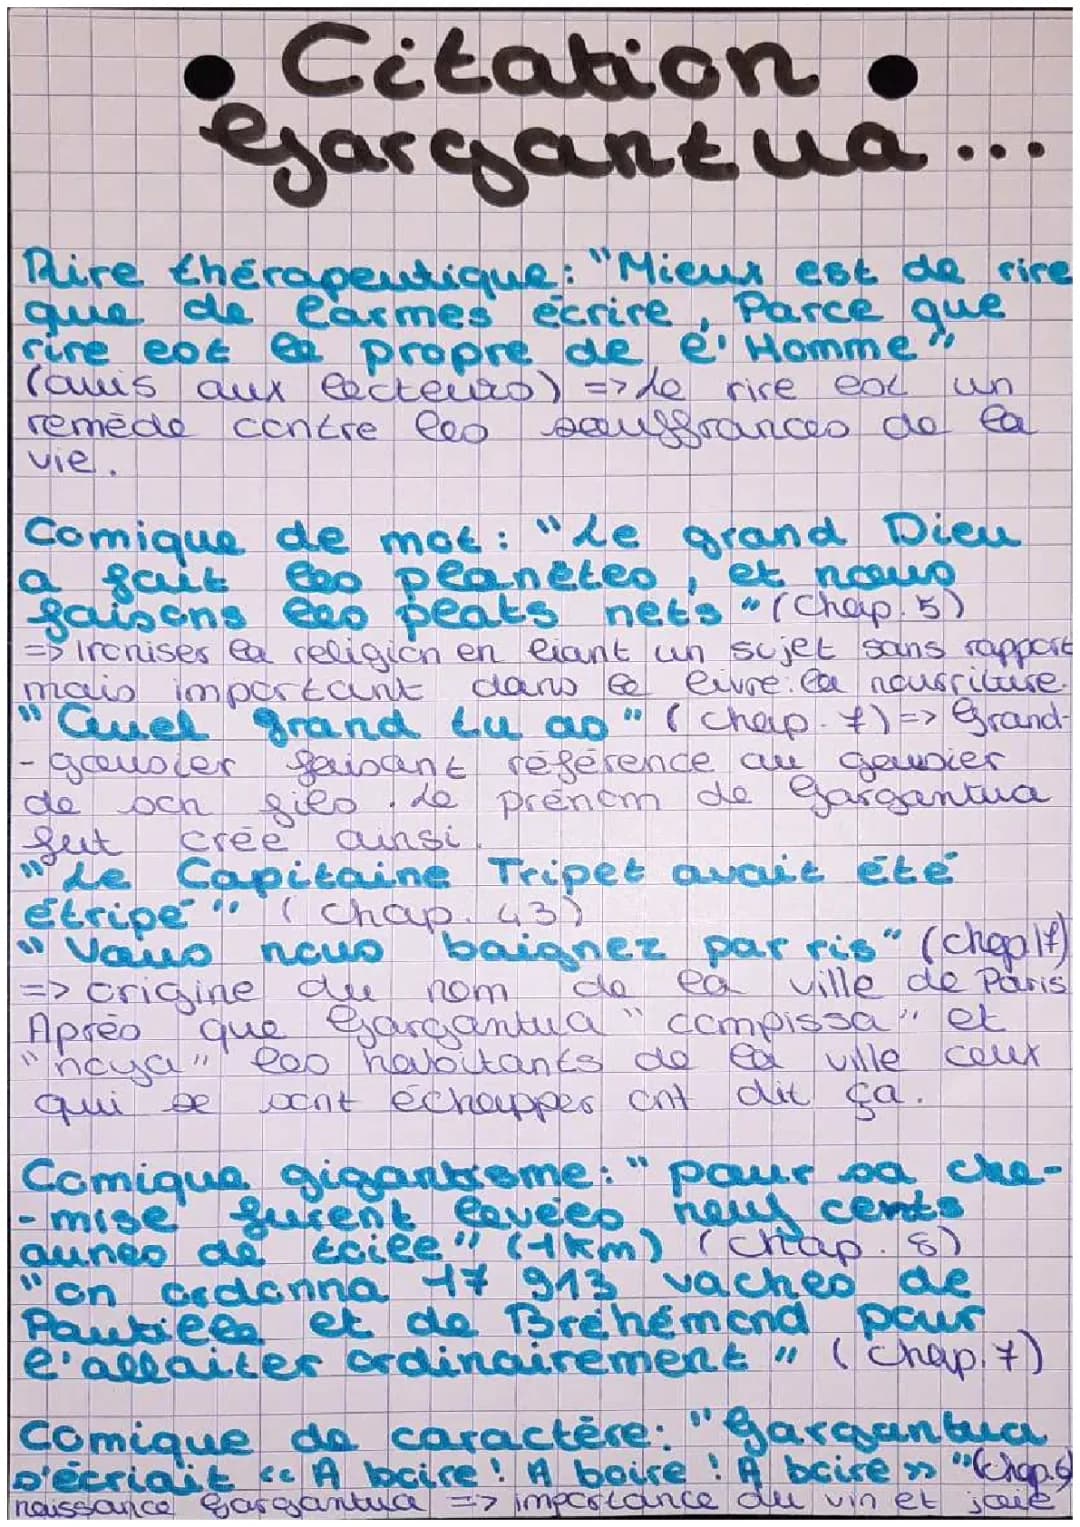 • Citation •
Gargantua...
Rire thérapeutique: "Mieux est de rire
que de larmes écrire, Parce que
rire est le propre de l'Homme"
(avis aux lecteurs) => Le rire est un
remède contre les souffrances de la
vie.
Comique de mot: "Le grand Dieu
a fait les planètes, et nous
faisons les plats nets" (Chap. 5)
=> Ironiser la religion en liant un sujet sans rapport
mais important dans le livre: la nourriture.
"Quel grand tu as" (chap. 7) => Grand-
-gousier faisant référence au gousier
de son fils. Le prénom de Gargantua
fut crée ainsi.
"Le Capitaine Tripet avait été
étripé" (chap. 43)
"Vous nous baignez par ris" (chap 17)
=> origine du nom de la ville de Paris
Après que Gargantua "compissa" et
"noya" les habitants de la ville ceux
qui se sont échapper ont dit ça.
Comique gigantisme: "pour sa che-
-mise furent levées neuf cents
aunes de toile" (1km) (chap. 8)
"on ordonna 17 913 vaches de
Pautille et de Bréhémond pour
l'allaiter ordinairement" (chap. 7)
Comique de caractère: "Gargantua
s'écriait << A boire! A boire! A boire >> " (chap. 6)
naissance Gargantua => importance du vin et joie